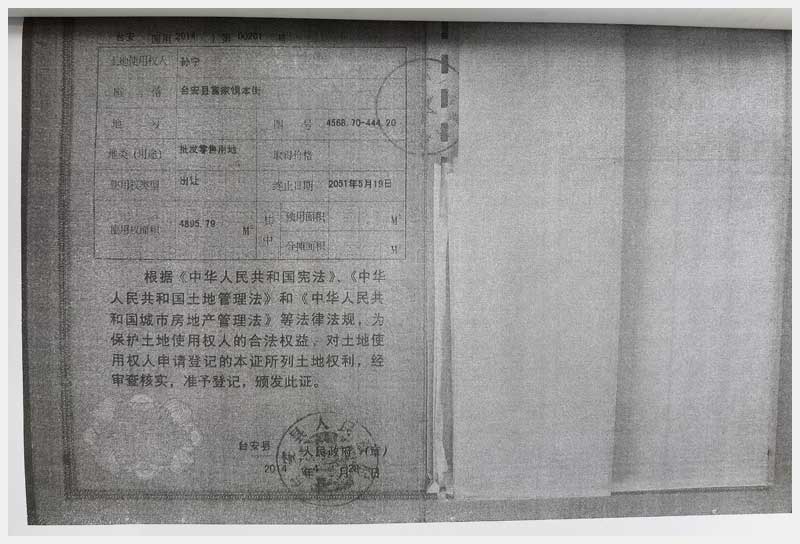 台安 国用 2014 第 00201 号
土地使用权人 孙宁
座落 台安县富家镇本街
地号 图号 4568.70-444.20
地类(用途) 批发零售用地 取得价格
使用权类型 出让 终止日期 2051年5月19日
使用权面积 4895.79 M² 其中 独用面积 M²
分摊面积 M²
根据《中华人民共和国宪法》、《中华
人民共和国土地管理法》和《中华人民共
和国城市房地产管理法》等法律法规，为
保护土地使用权人的合法权益，对土地使
用权人申请登记的本证所列土地权利，经
审查核实，准予登记，颁发此证。
台安县 人民政府（章）
2014 年 4 月 日